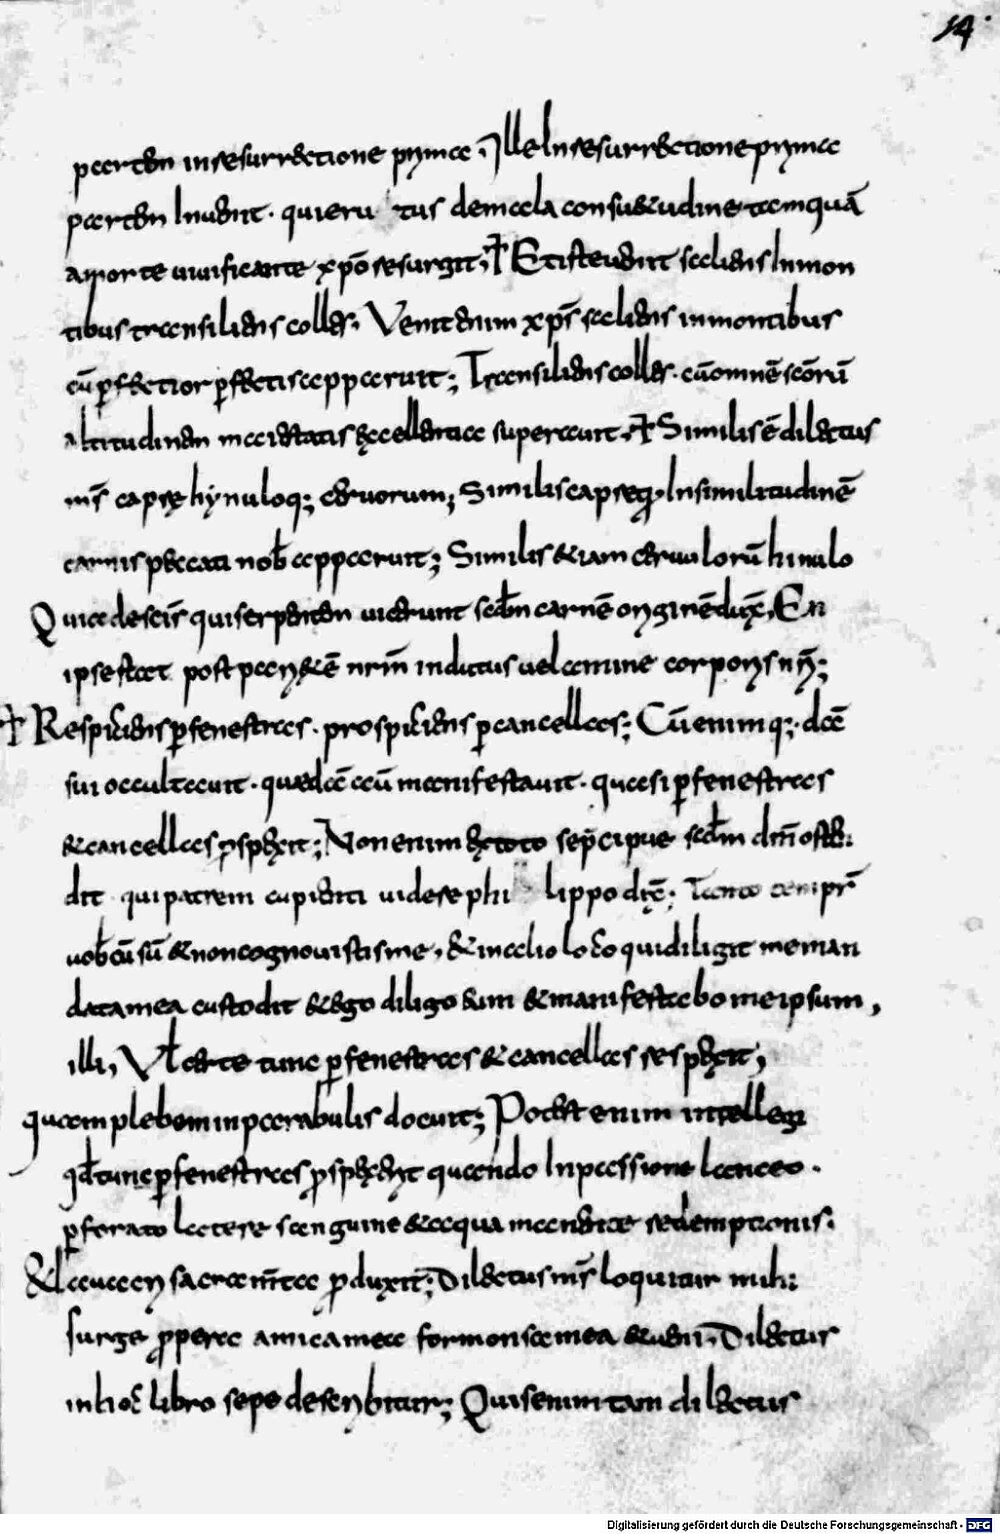 14
partem in resurrectione prima. Ille In resurrectione prima
partem Inuenit. qui eru tus demala consuetudine tamquā
amorte uiuificante xp̄o resurgit, ✝ Ecisteuenit saliens Inmon
tibus transiliens colles. Venit enim xp̄s saliens inmontibus
cū perfectior perfectis apparuit; Transiliens colles. cūomnē scōrū
altitudinem maiestatis excellentia superauit. ✝ Similis ē dilectus
m̄s capre hynuloq; ceruorum; Similis capreq. Insimilitudinē
carnis peccati nob̄ apparuit; Similis etiam ceruulorū hinulo
Quia descīs qui serpentem uicerunt sc̄dm carnē originē dux̄, En
ipse stat post parietē nr̄m indutus uelamine corporis nr̄i;
✝ Respiciens per fenestras. prospiciens per cancellos; Cū enimq; dēē
sui occultauit. quædēē eū manifestauit. quasi per fenestras
& cancellos prospexit; Non enim ex toto se præcipue sc̄dm dm̄ osten
dit. qui patrem cupienti uidere phi lippo dix̄; Tanto tempr̄
uob̄cū sū & non cognouistis me. & in alio loco qui diligit me man
data mea custodit & ego diligo eum & manifestabo meipsum,
illi, Vł certe tunc per fenestras & cancellos respexit,
quam plebem inparabulis docuit; Potest enim intellegi
qđ tunc per fenestras prospexerit quando Inpassione lancea.
perforato latere sanguine & aqua manente redemptionis.
& lauacri sacram̄ta produxit; Dilectus m̄s loquitur mihi:
surge propera amica mea formonsa mea & ueni. Dilectus
in hoc libro sepe describitur; Quis enim tam dilectus
Digitalisierung gefördert durch die Deutsche Forschungsgemeinschaft - DFG